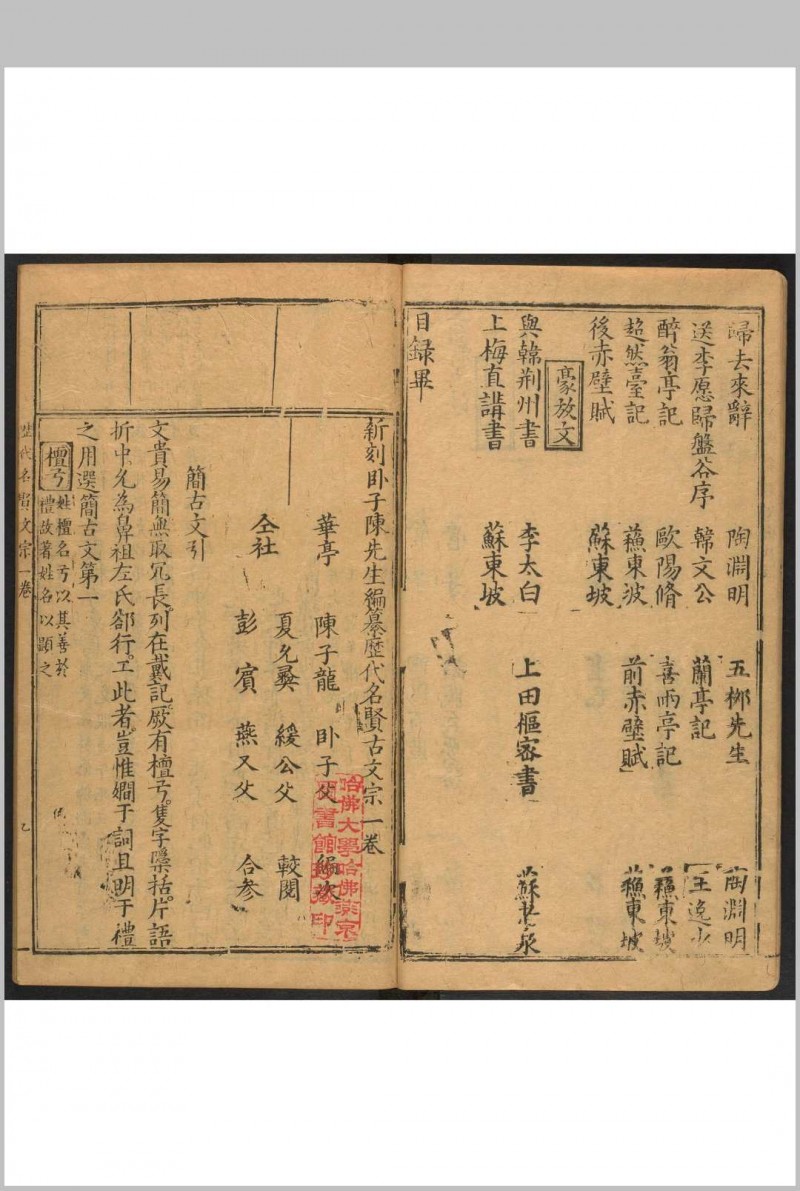 歸去來辭 陶淵明 五柳先生 陶淵明
送李愿歸盤谷序 韓文公 蘭亭記 王逸少
醉翁亭記 歐陽脩 喜雨亭記 蘇東坡
超然臺記 蘇東波 前赤壁賦 蘇東坡
後赤壁賦 蘇東坡
豪放文
與韓荆州書 李太白 上田樞密書 蘇老泉
上梅直講書 蘇東坡
目録畢
新刻卧子陳先生編纂歷代名賢古文宗一卷
華亭 陳子龍 卧子父 編次
夏允彝 緩公父 較閱
仝社
彭賓 燕又父 合参
簡古文引
文貴易簡無取冗長列在戴記厥有檀弓隻字櫽括片語
折中允為鼻祖左氏郤行工此者豈惟嫺于詞且明于禮
之用選簡古文第一
檀弓
姓檀名弓以其善於
禮故著姓名以顯之
歷代名賢文宗一卷
乙
哈佛大學哈佛燕京
圖書館珍藏印